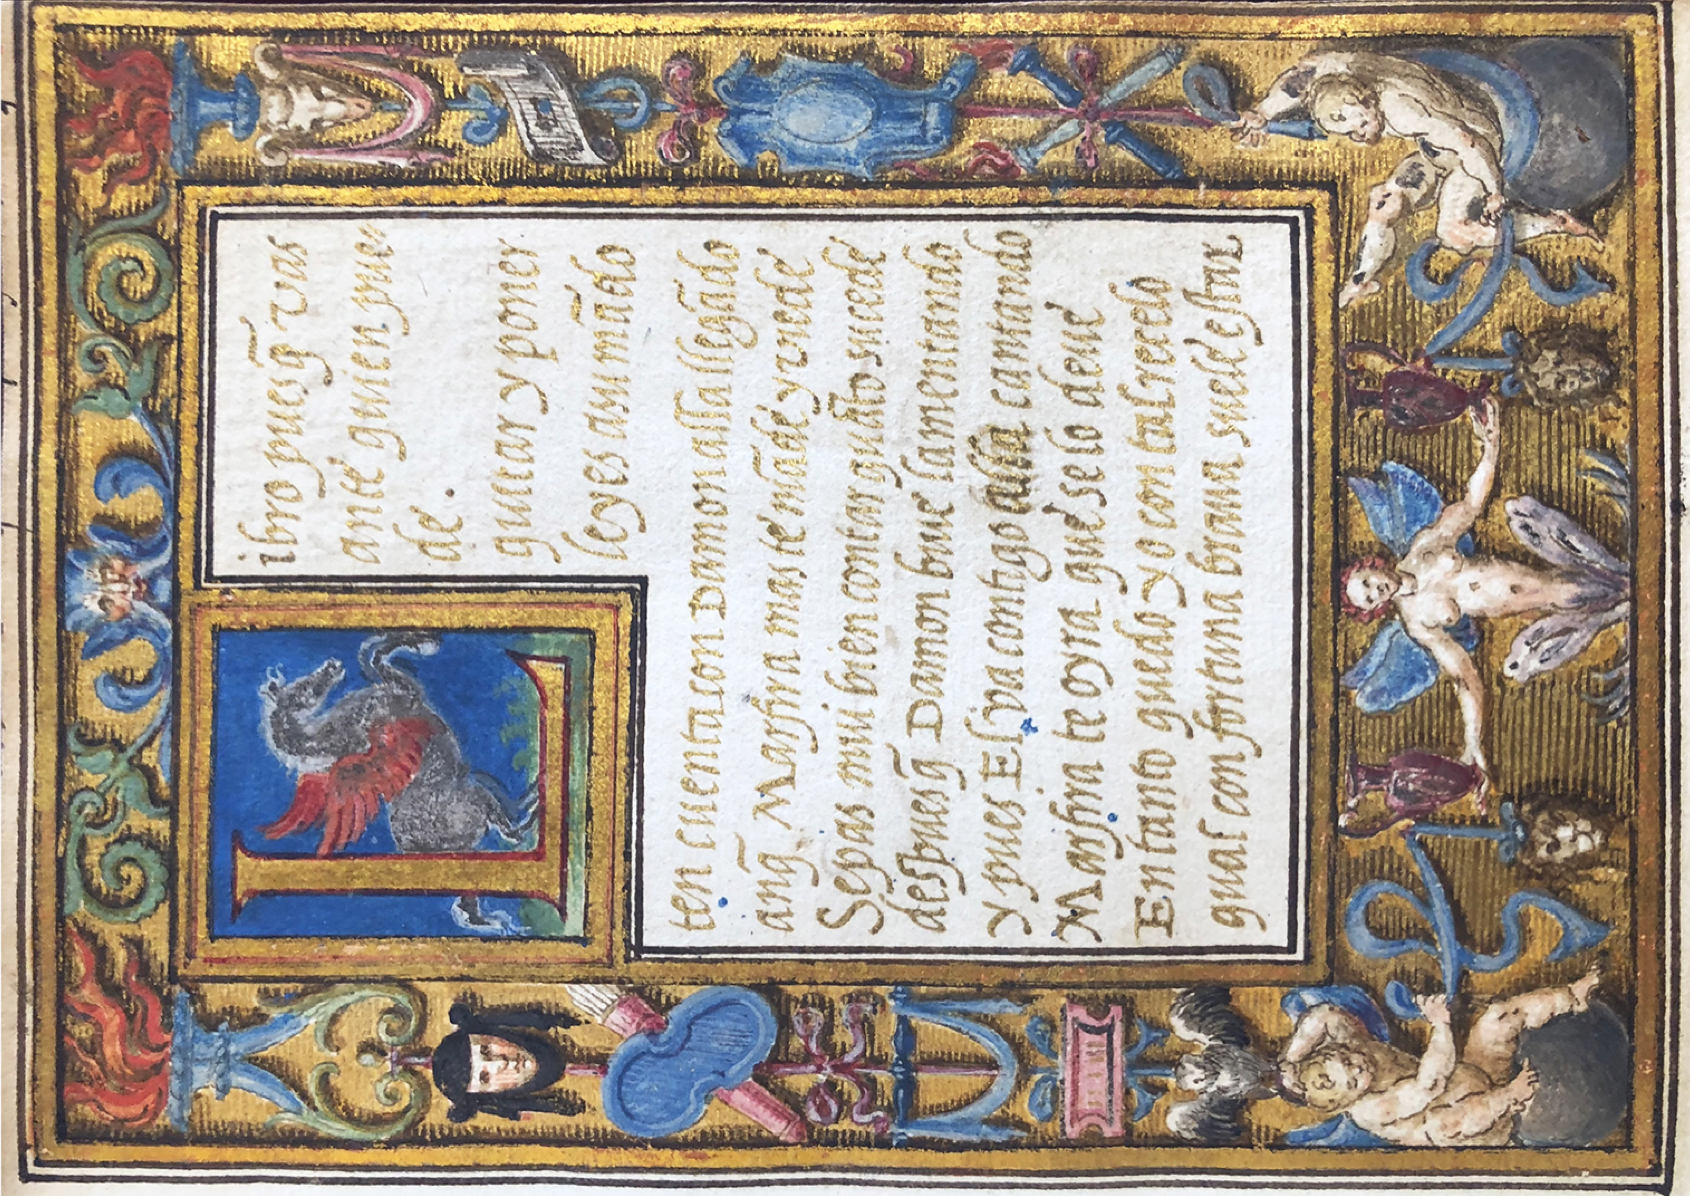 Libro pues q̃ vas
ante quien pue
de.
quitar y poner
leyes a su mãdo
ten cuenta con Damon alla llegãdo
aunq̃ Marfira mas te mãde y vede
Sepas mui bien contar quãto sucede
despues q̃ Damon biue lamentando
y pues El yra contigo alla cantando
Marfira te oyra que se lo deue
En tanto quedo yo con tal recelo
qual con fortuna braua suele estar